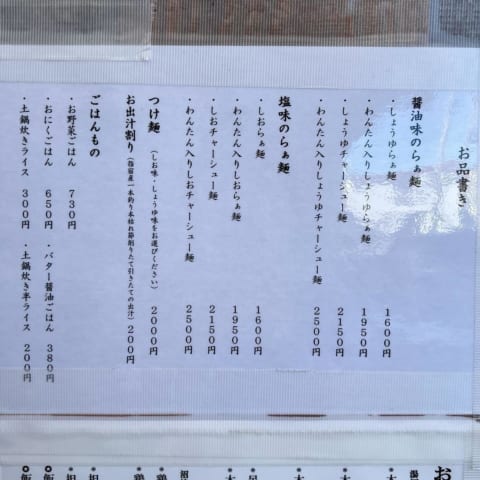 お品書き
醤油味のらぁ麺
・しょうゆらぁ麺 1600円
・わんたん入りしょうゆらぁ麺 1950円
・しょうゆチャーシュー麺 2150円
・わんたん入りしょうゆチャーシュー麺 2500円
塩味のらぁ麺
・しおらぁ麺 1600円
・わんたん入りしおらぁ麺 1950円
・しおチャーシュー麺 2150円
・わんたん入りしおチャーシュー麺 2500円
つけ麺 (しお味・しょうゆ味をお選びください) 2000円
お出汁割り (指宿産一本釣り本枯れ節削りたて引きたての出汁) 200円
ごはんもの
・お野菜ごはん 730円
・おにくごはん 650円 ・バター醤油ごはん 380円
・土鍋炊きライス 300円 ・土鍋炊き半ライス 200円
お